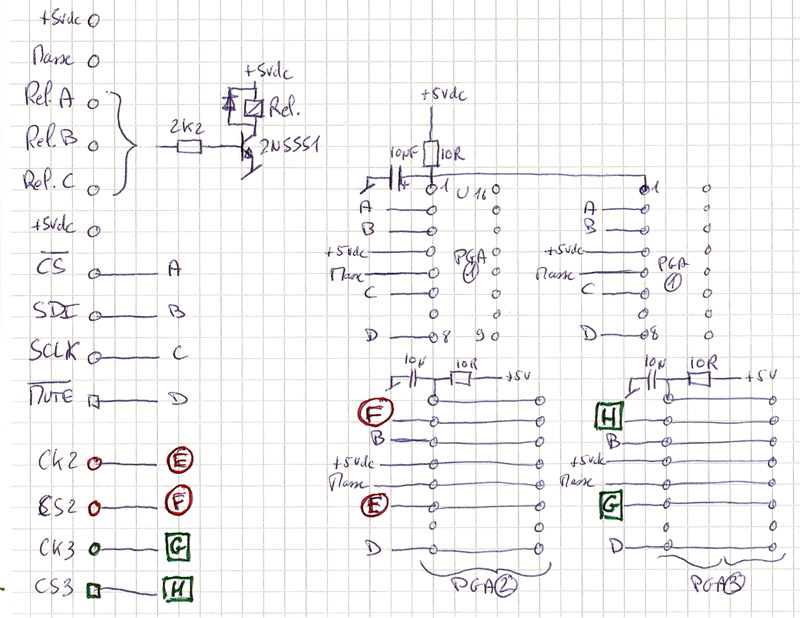 +5vdc
Masse
Rel. A
Rel. B
Rel. C
+5vdc
CS
SDI
SCLK
MUTE
A
B
C
D
CK2
CS2
CK3
CS3
E
F
G
H
2K2
+5vdc
Rel.
2N5551
+5vdc
10NF
10R
+
1
U 16
A
B
+5vdc
Masse
C
D
PGA
1
8
9
1
A
B
+5vdc
Masse
C
D
PGA
1
8
10N
10R
+5V
F
B
+5vdc
Masse
E
D
PGA 2
10N
10R
+5V
H
B
+5vdc
Masse
G
D
PGA 3